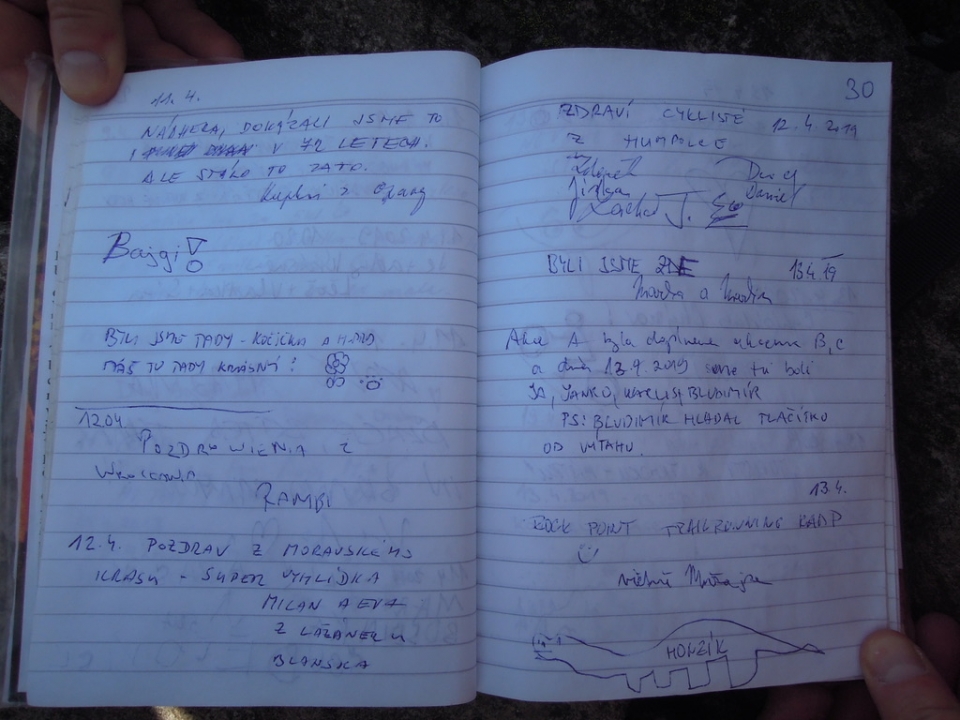 11. 4.
NÁDHERA, DOKÁZALI JSME TO
V 72 LETECH.
ALE STÁLO TO ZATO.
Bajgi
BYLI JSME TADY - KOČIČKA A
MÁŠ TU TADY KRÁSNÝ!
12.04.
POZDROWIENIA Z
WROCŁAWIA
RAMBI
12.4. POZDRAV Z MORAVSKÉHO
KRASU - SUPER VYHLÍDKA
MILAN A EVA
Z LAŽÁNEK U
BLANSKA
30
ZDRAVÍ CYKLISTÉ 12.4.2019
Z HUMPOLCE
Zdeněk
Jirka Daniel
BYLI JSME ZDE 13.4.19
a
Akce A byla doplnena akcema B, C
a dňa 13.4.2019 sme tu boli
JA, JANKO, BLUDIMÍR
PS: BLUDIMÍR HLADAL TLAČÍTKO
OD VÝTAHU.
13.4.
ROCK POINT TRAILRUNNING KAMP
HONZÍK